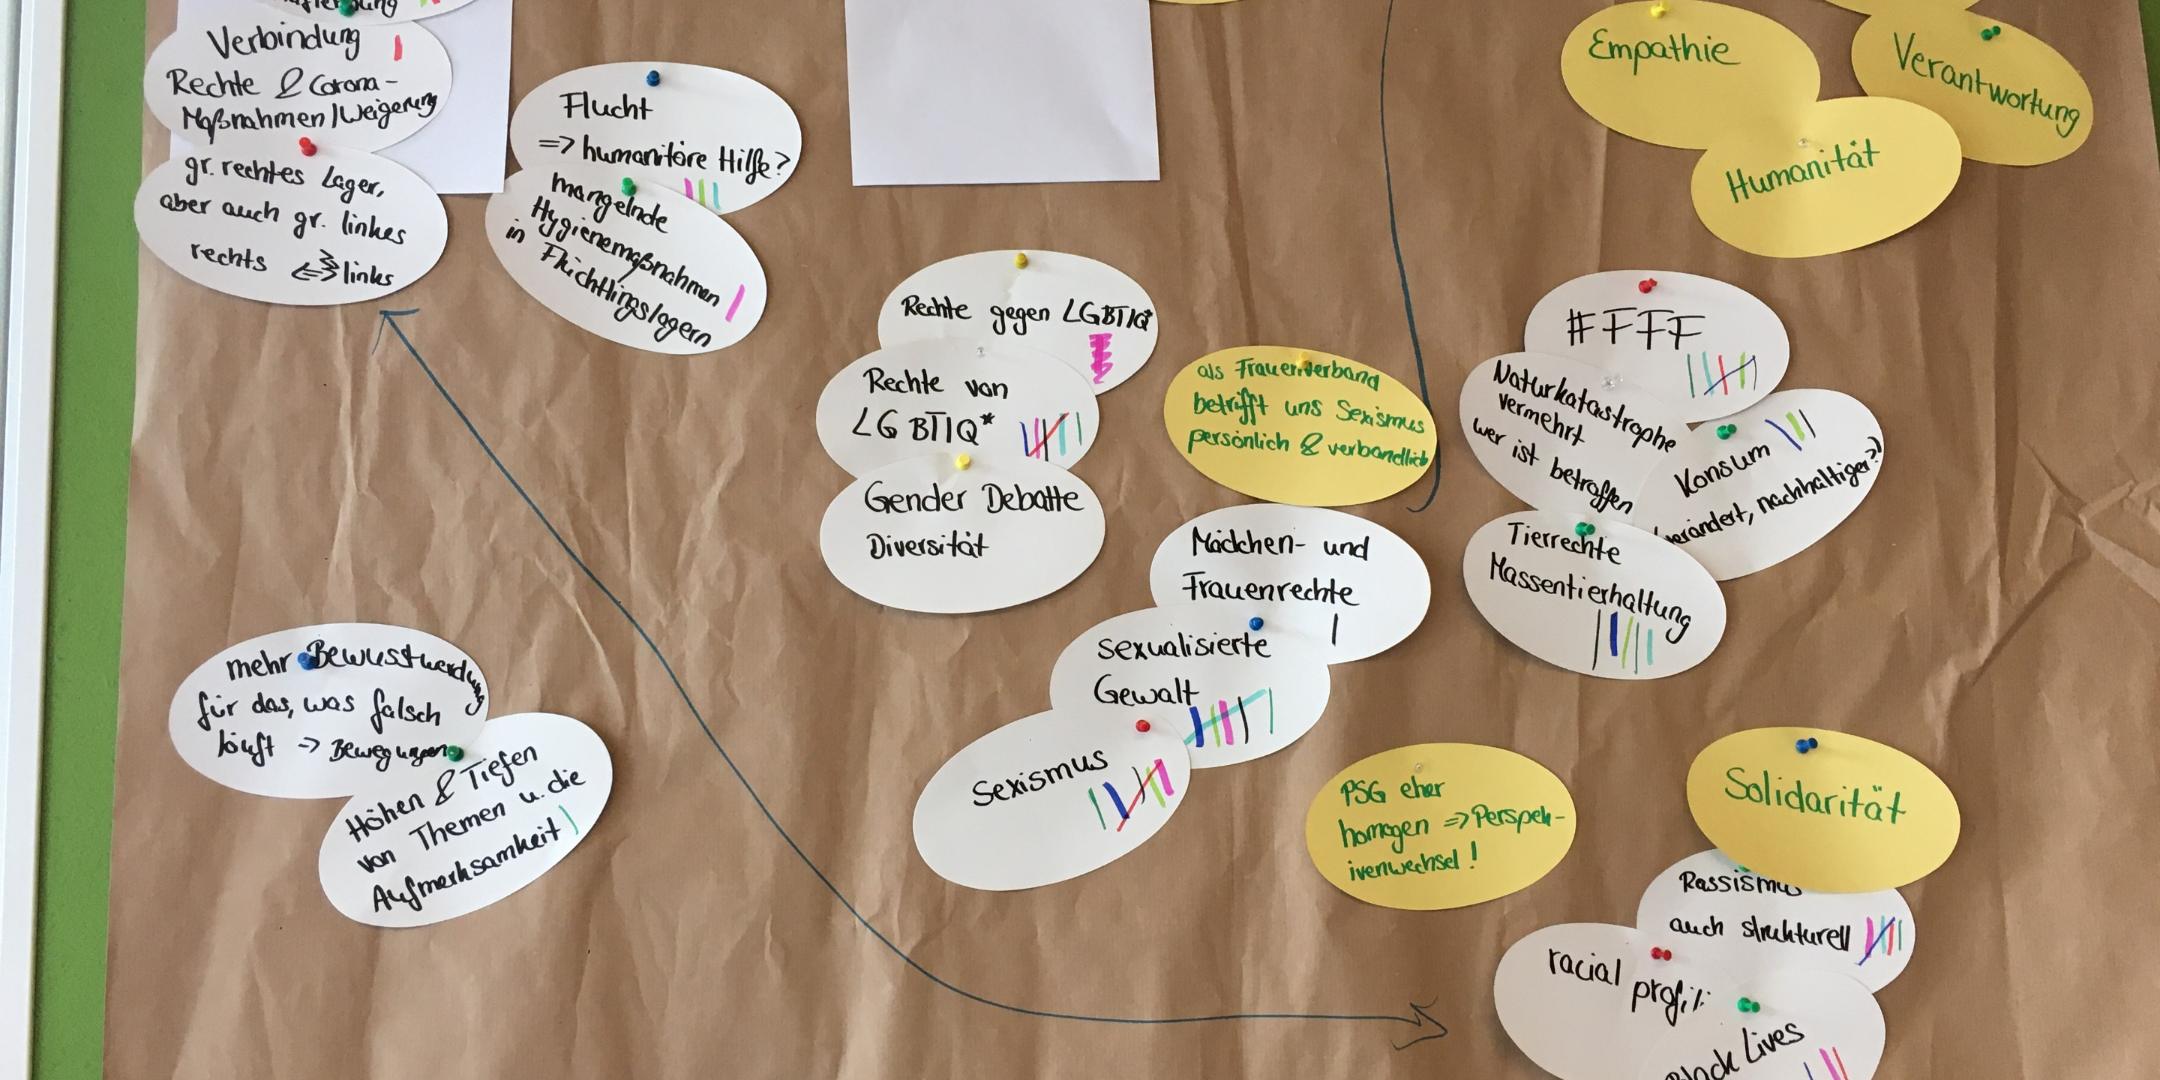 Verbindung
Rechte & Corona-
Maßnahmen/Weigerung
gr. rechtes Lager,
aber auch gr. linkes
rechts links
Flucht
=> humanitäre Hilfe?
mangelnde
Hygienemaßnahmen
in Flüchtlingslagern
Empathie
Verantwortung
Humanität
Rechte gegen LGBTIQ*
Rechte von
LGBTIQ*
Gender Debatte
Diversität
als Frauenverband
betrifft uns Sexismus
persönlich & verbandlich
#FFF
Naturkatastrophe
vermehrt
wer ist betroffen
Konsum
verändert, nachhaltiger?)
Tierrechte
Massentierhaltung
Mädchen- und
Frauenrechte
sexualisierte
Gewalt
Sexismus
mehr Bewusstwerdung
für das, was falsch
läuft -> Bewegungen
Höhen & Tiefen
von Themen u. die
Aufmerksamkeit
PSG eher
homogen => Perspek-
ivenwechsel!
Solidarität
Rassismus
auch strukturell
racial profili
Black Lives